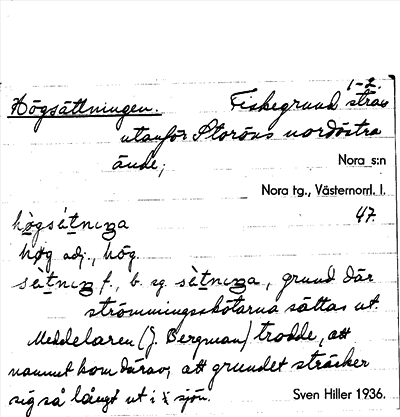 1-2.
Högsättningen. Fiskegrund strax
utanför Storöns nordöstra
ände,
Nora s:n
Nora tg., Västernorrl. l.
47.
hø̀gsètnıŋa
høg adj., hög.
sètnıŋ f., b. sg. sètnıŋa, grund där
strömmingsskötarna sättas ut.
Meddelaren (J. Bergman) trodde, att
namnet kom därav, att grundet sträcker
sig så långt ut i sjön.
Sven Hiller 1936.